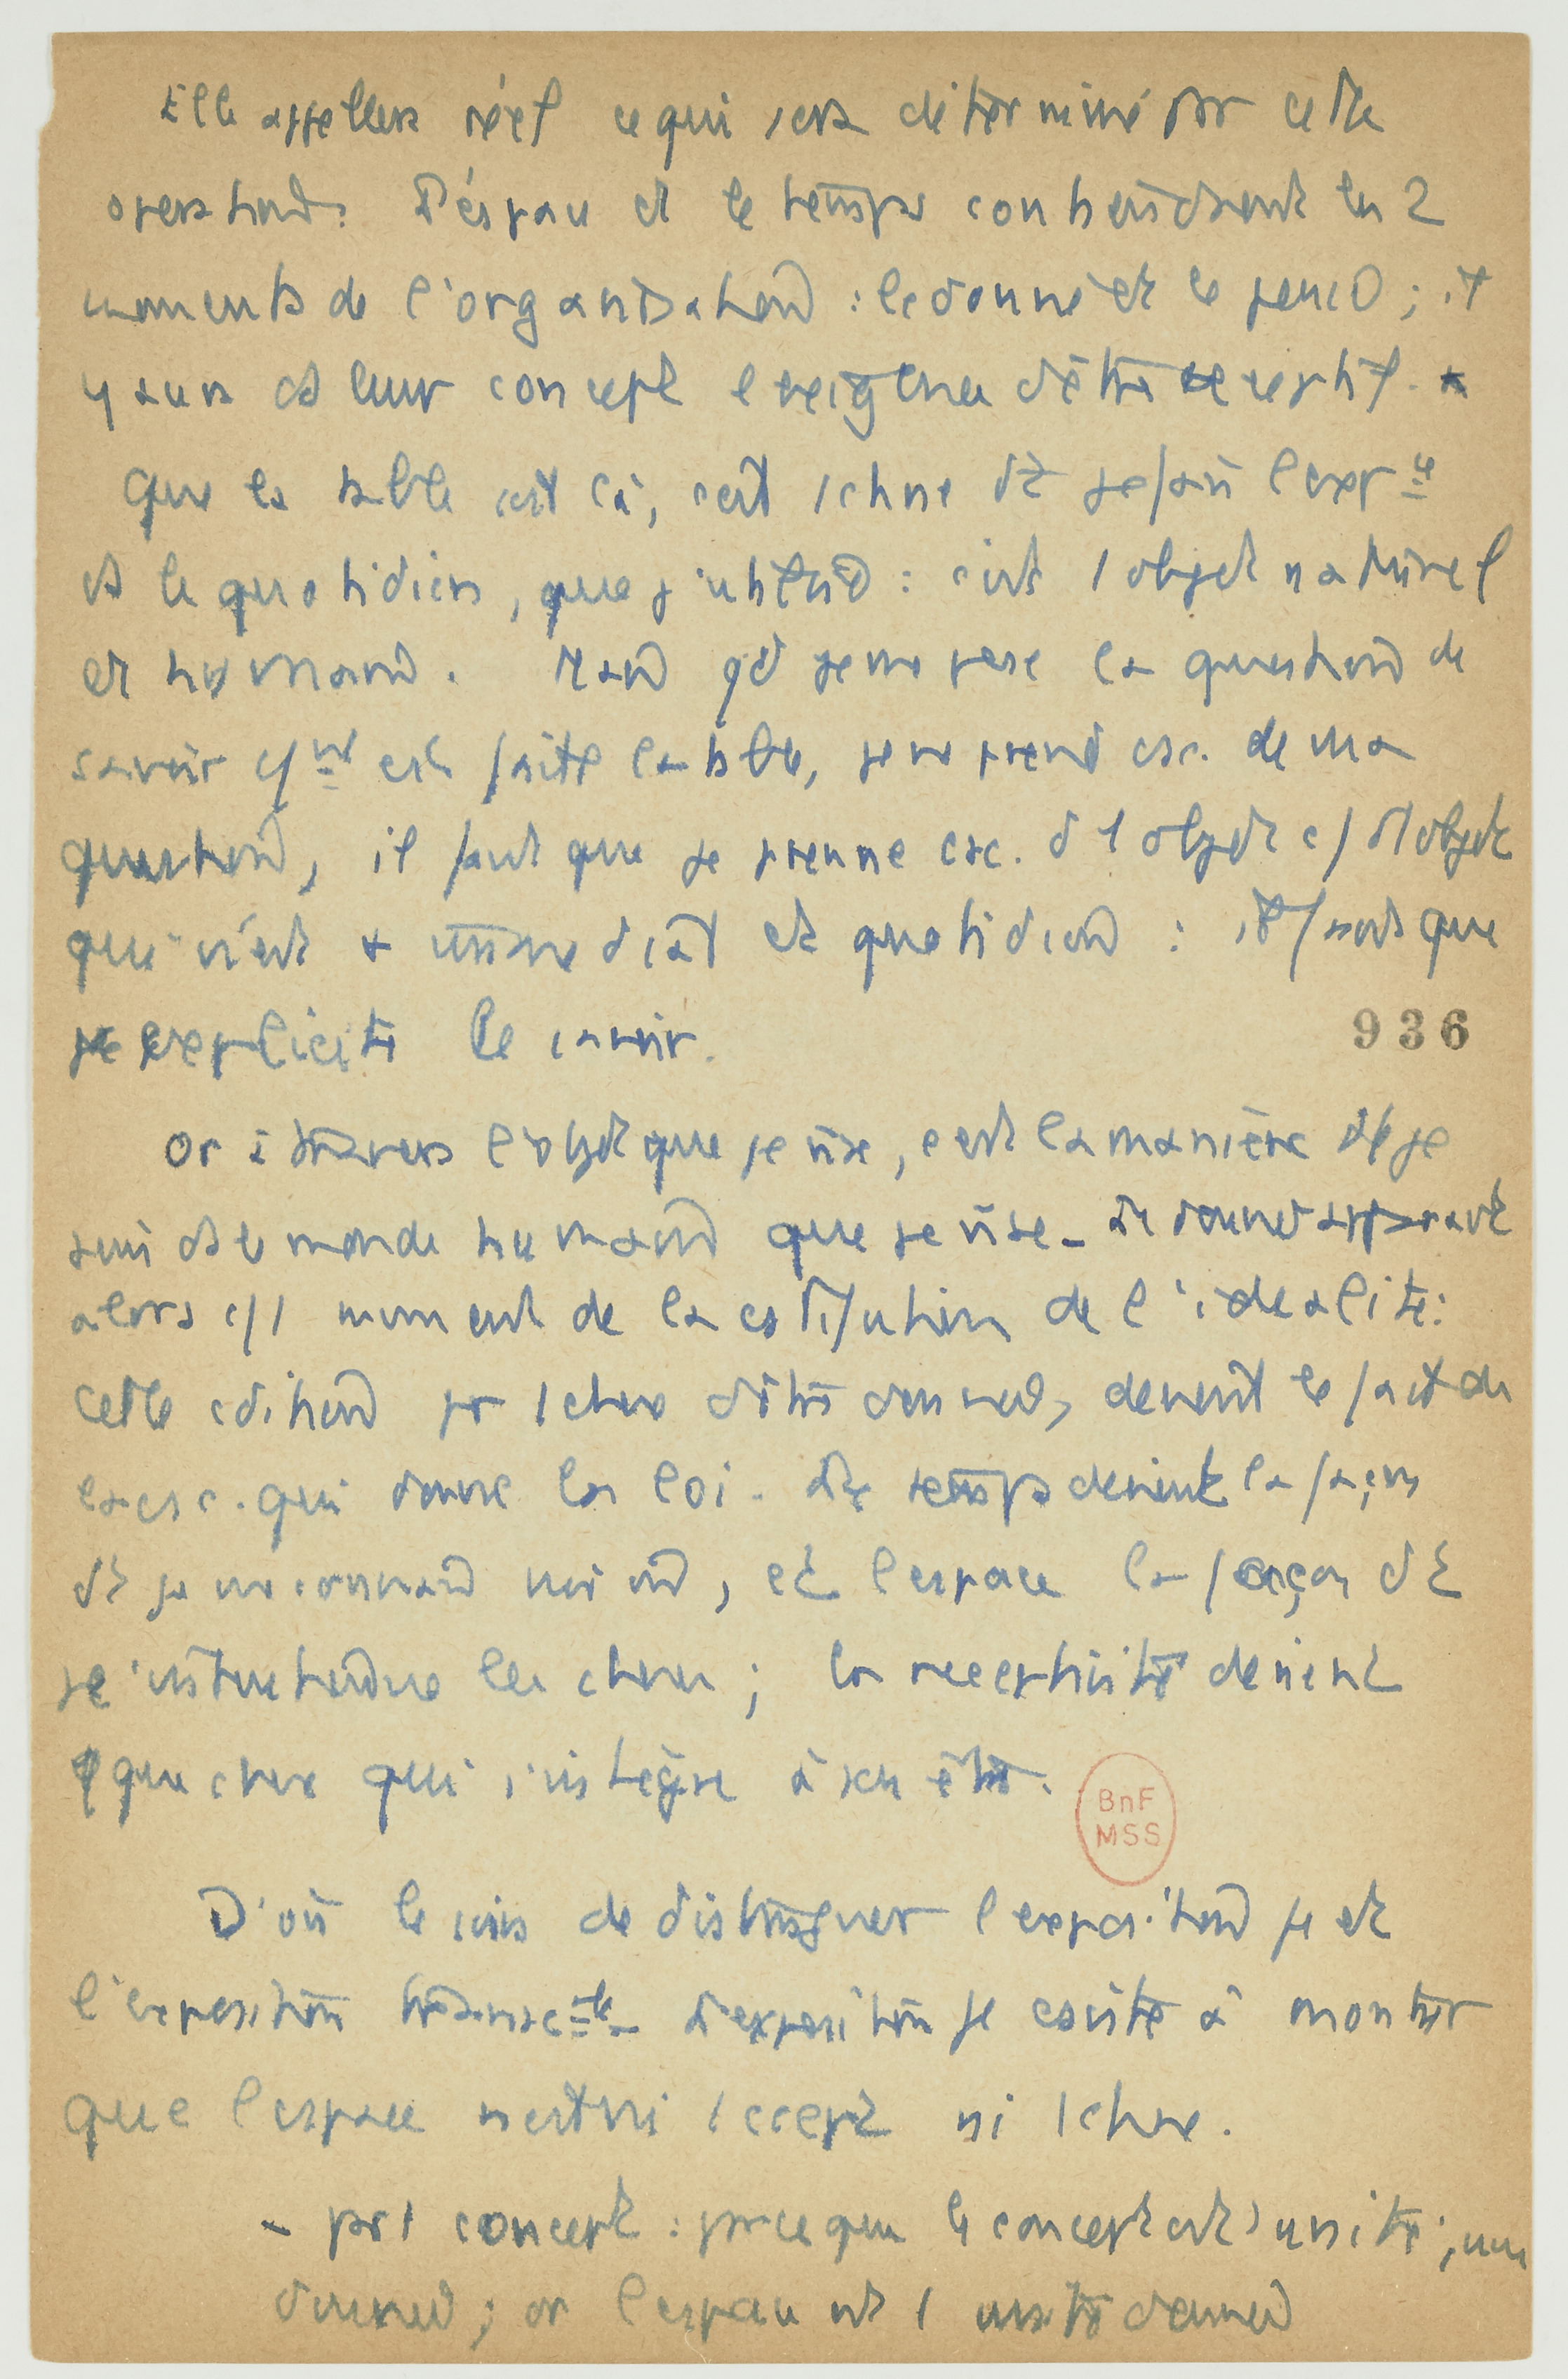 Elle appellera réel ce qui sera déterminé par cette
operation. L'espace et le temps contiendront les 2
moments de l'organisation : le donné et le pensé ; il
y aura ds leur concept exigence d'être receptif.
Que la table est là, c'est 1 chose dt je fais l'exp ce
ds le quotidien, que j'utilise : c'est 1 objet naturel
et humain. Mais qd je me pose la question de
savoir c/ nt est faite la table, je ne prend csc. de ma
question, il faut que je prenne csc. d 1 objet c/ d 1 objet
qui n'est + immediat et quotidien : il faut que
je explicite le savoir.
936
Or à travers l'objet que je vise, c'est la manière dt je
suis ds le monde humain que je vise _ Le donné apparait
alors c/ 1 moment de la cstitution de l'idealité :
cette cdition pr 1 chose d'être donnée, devient le fait de
la csc. qui donne la loi. Le temps devient la façon
dt je me connais moi m, et l'espace la façon dt
je les choses ; la receptivité devient
qque chose qui s'intègre à son être.
BnF
MSS
D'où le soin de distinguer l'exposition et
l'exposition transc le _ L'exposition csiste à montrer
que l'espace n'est ni 1 ccept ni 1 chose.
- pas 1 concept : parce que le concept est 1 unité, non
donnée ; or l'espace est 1 unité donnée